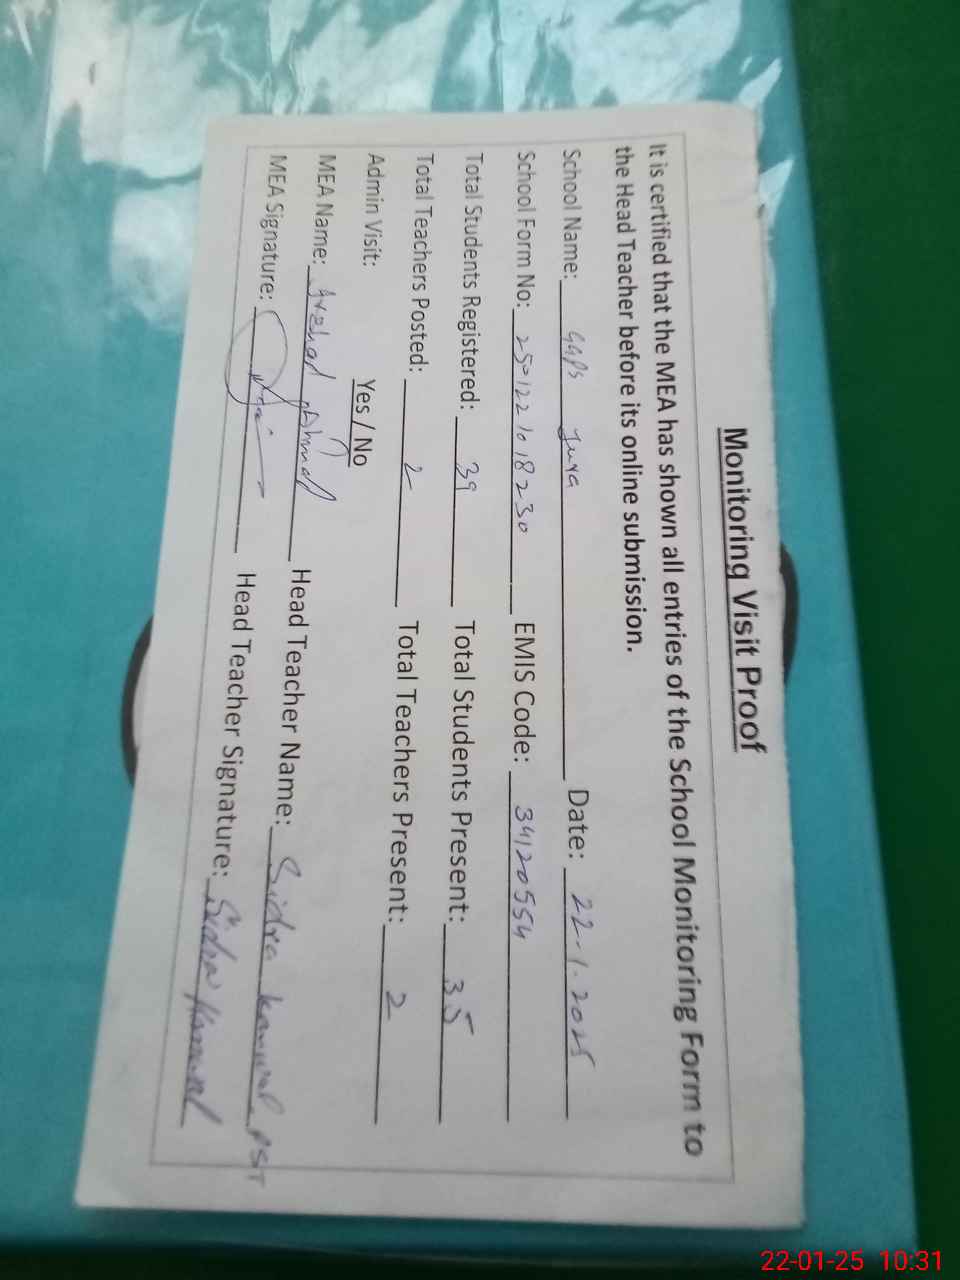 Monitoring Visit Proof
It is certified that the MEA has shown all entries of the School Monitoring Form to
the Head Teacher before its online submission.
School Name: GGPS Jurya Date: 22.1.2025
School Form No: 250122 1018230 EMIS Code: 34120554
Total Students Registered: 39 Total Students Present: 35
Total Teachers Posted: 2 Total Teachers Present: 2
Admin Visit: Yes / No
MEA Name: Arshad Ahmad Head Teacher Name: Sidra Kanwal PST
MEA Signature: Head Teacher Signature: Sidra Kanwal
22-01-25 10:31